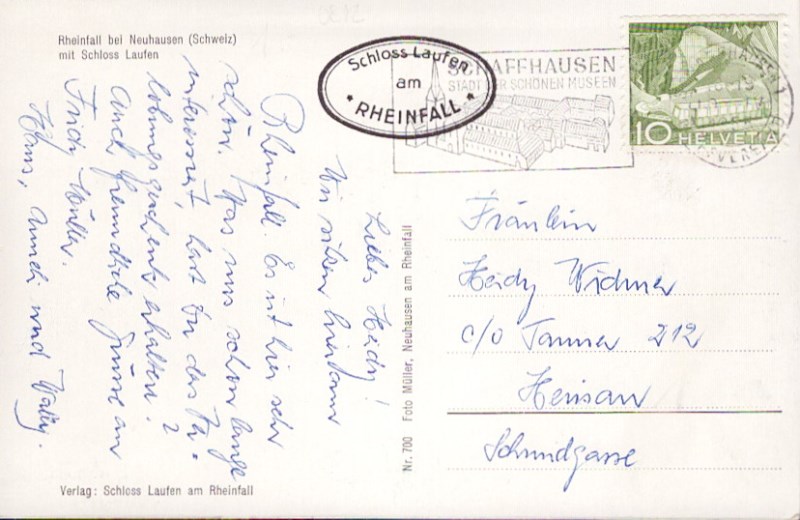 Rheinfall bei Neuhausen (Schweiz)
mit Schloss Laufen
Schloss Laufen
am
* RHEINFALL *
SCHAFFHAUSEN
STADT DER SCHÖNEN MUSEEN
10 HELVETIA
Liebes Heidy!
Wir sitzen
Rheinfall. Es ist hier sehr
schön. Was uns schon lange
interessiert, hast Du das
erhalten?
Auch freundliche Grüsse an
Fridy Müller.
Hans, und
Fräulein
Heidy Widmer
c/o Tanner 212
Herisau
Schmidgasse
Nr. 700 Foto Müller, Neuhausen am Rheinfall
Verlag: Schloss Laufen am Rheinfall